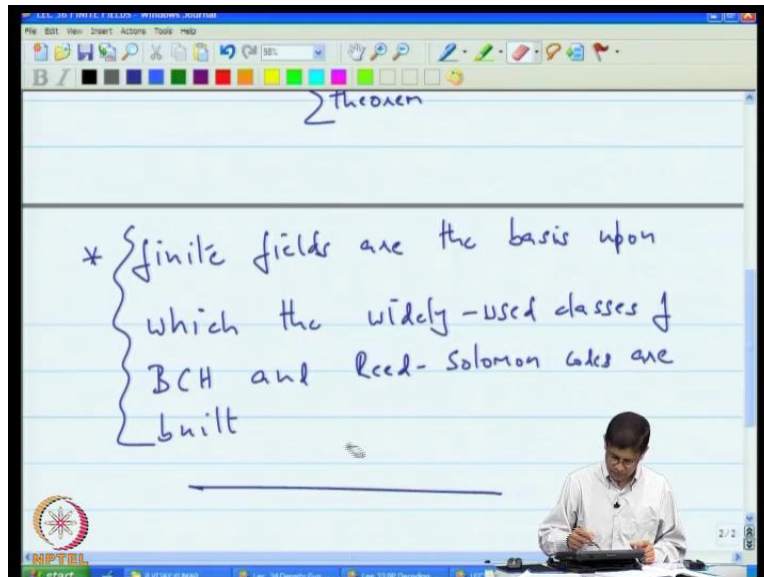 LEC 36 FINITE FIELDS - Windows Journal
File Edit View Insert Actions Tools Help
98%
B I
theorem
* finite fields are the basis upon
which the widely-used classes of
BCH and Reed-Solomon codes are
built
2/2
NPTEL
start